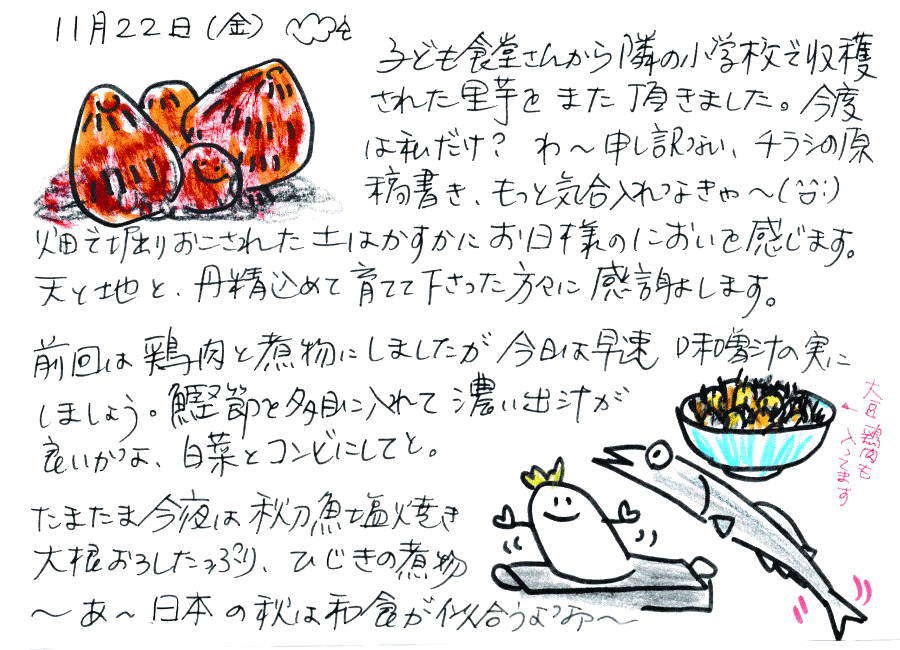 11月22日(金)
子ども食堂さんから隣の小学校で収穫
された里芋をまた頂きました。今度
は私だけ? わ〜申し訳ない、チラシの原
稿書き、もっと気合入れなきゃ〜(^^;)
畑で堀りおこされた土はかすかにお日様のにおいを感じます。
天と地と、丹精込めて育てて下さった方々に感謝します。
前回は鶏肉と煮物にしましたが今日は早速味噌汁の実に
しましょう。鰹節を多目に入れて濃い出汁が
良いかな、白菜とコンビにしてと。
たまたま今夜は秋刀魚塩焼き
大根おろしたっぷり、ひじきの煮物
〜あ〜日本の秋は和食が似合うよな〜
大豆、鶏肉も
入ってます